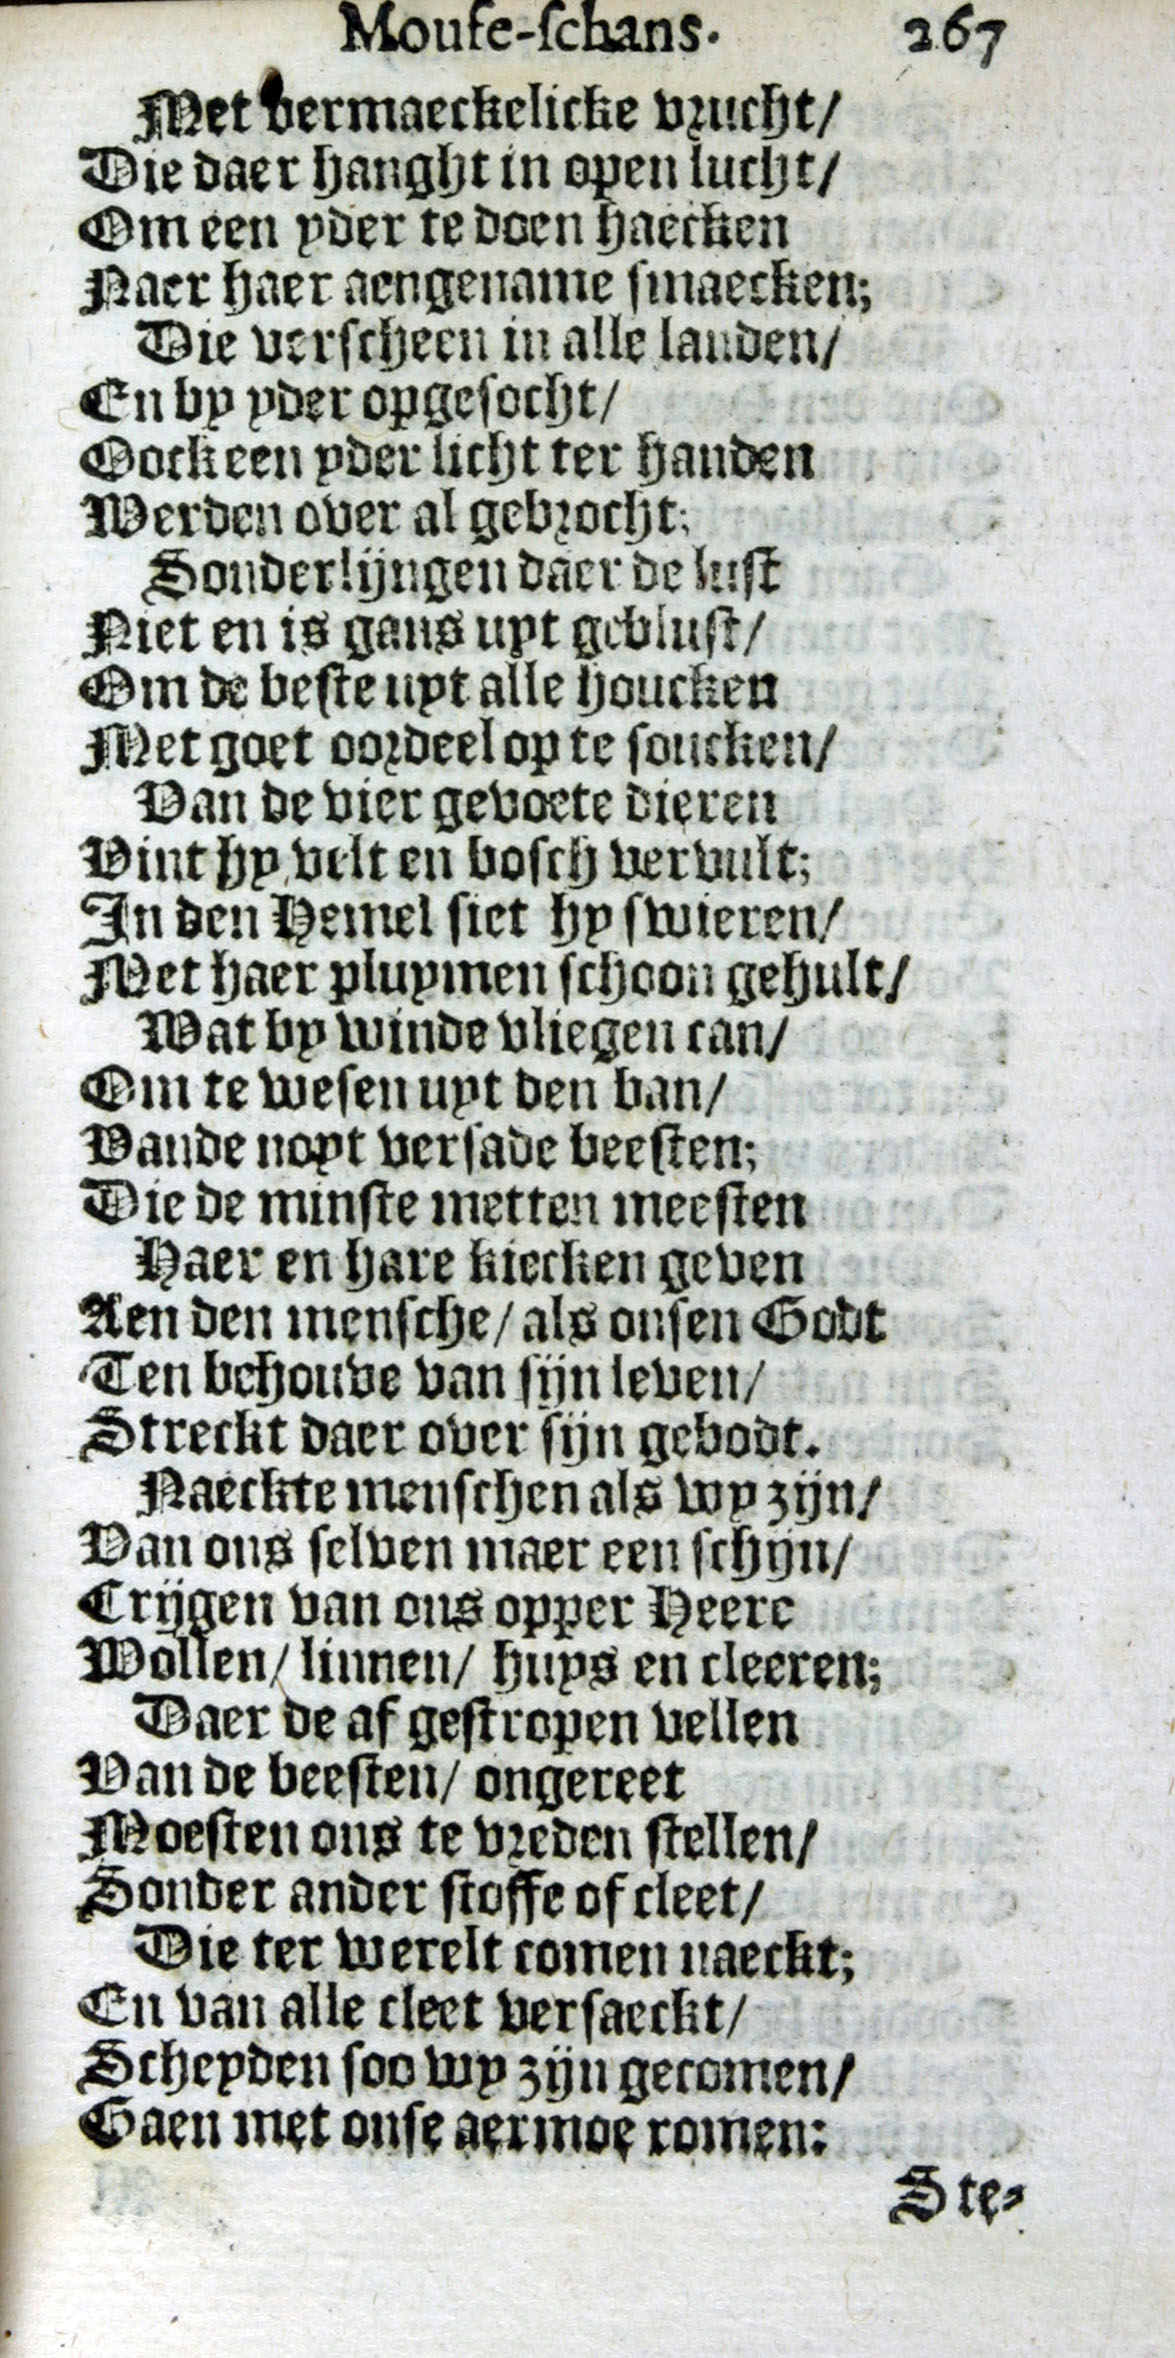 Moufe-ſchans. 267
Met vermaeckelicke vrucht/
Die daer hanght in open lucht/
Om een yder te doen haecken
Naer haer aengename ſmaecken;
Die verſcheen in alle landen/
En by yder opgeſocht/
Oock een yder licht ter handen
Werden over al gebrocht;
Sonderlijngen daer de luſt
Niet en is gans uyt gebluſt/
Om de beſte uyt alle houcken
Met goet oordeel op te ſoucken/
Van de vier gevoete dieren
Vint hy velt en boſch vervult;
In den Hemel ſiet hy ſwieren/
Met haer pluymen ſchoon gehult/
Wat by winde vliegen can/
Om te weſen uyt den ban/
Vande noyt verſade beeſten;
Die de minſte metten meeſten
Haer en hare kiecken geven
Aen den menſche/ als onſen Godt
Ten behouve van ſijn leven/
Streckt daer over ſijn gebodt.
Naeckte menſchen als wy zijn/
Van ons ſelven maer een ſchijn/
Crijgen van ons opper Heere
Wollen/ linnen/ huys en cleeren;
Daer de af geſtropen vellen
Van de beeſten/ ongereet
Moeſten ons te vreden ſtellen/
Sonder ander ſtoffe of cleet/
Die ter werelt comen naeckt;
En van alle cleet verſaeckt/
Scheyden ſoo wy zijn gecomen/
Gaen met onſe aermoe romen:
Ste-